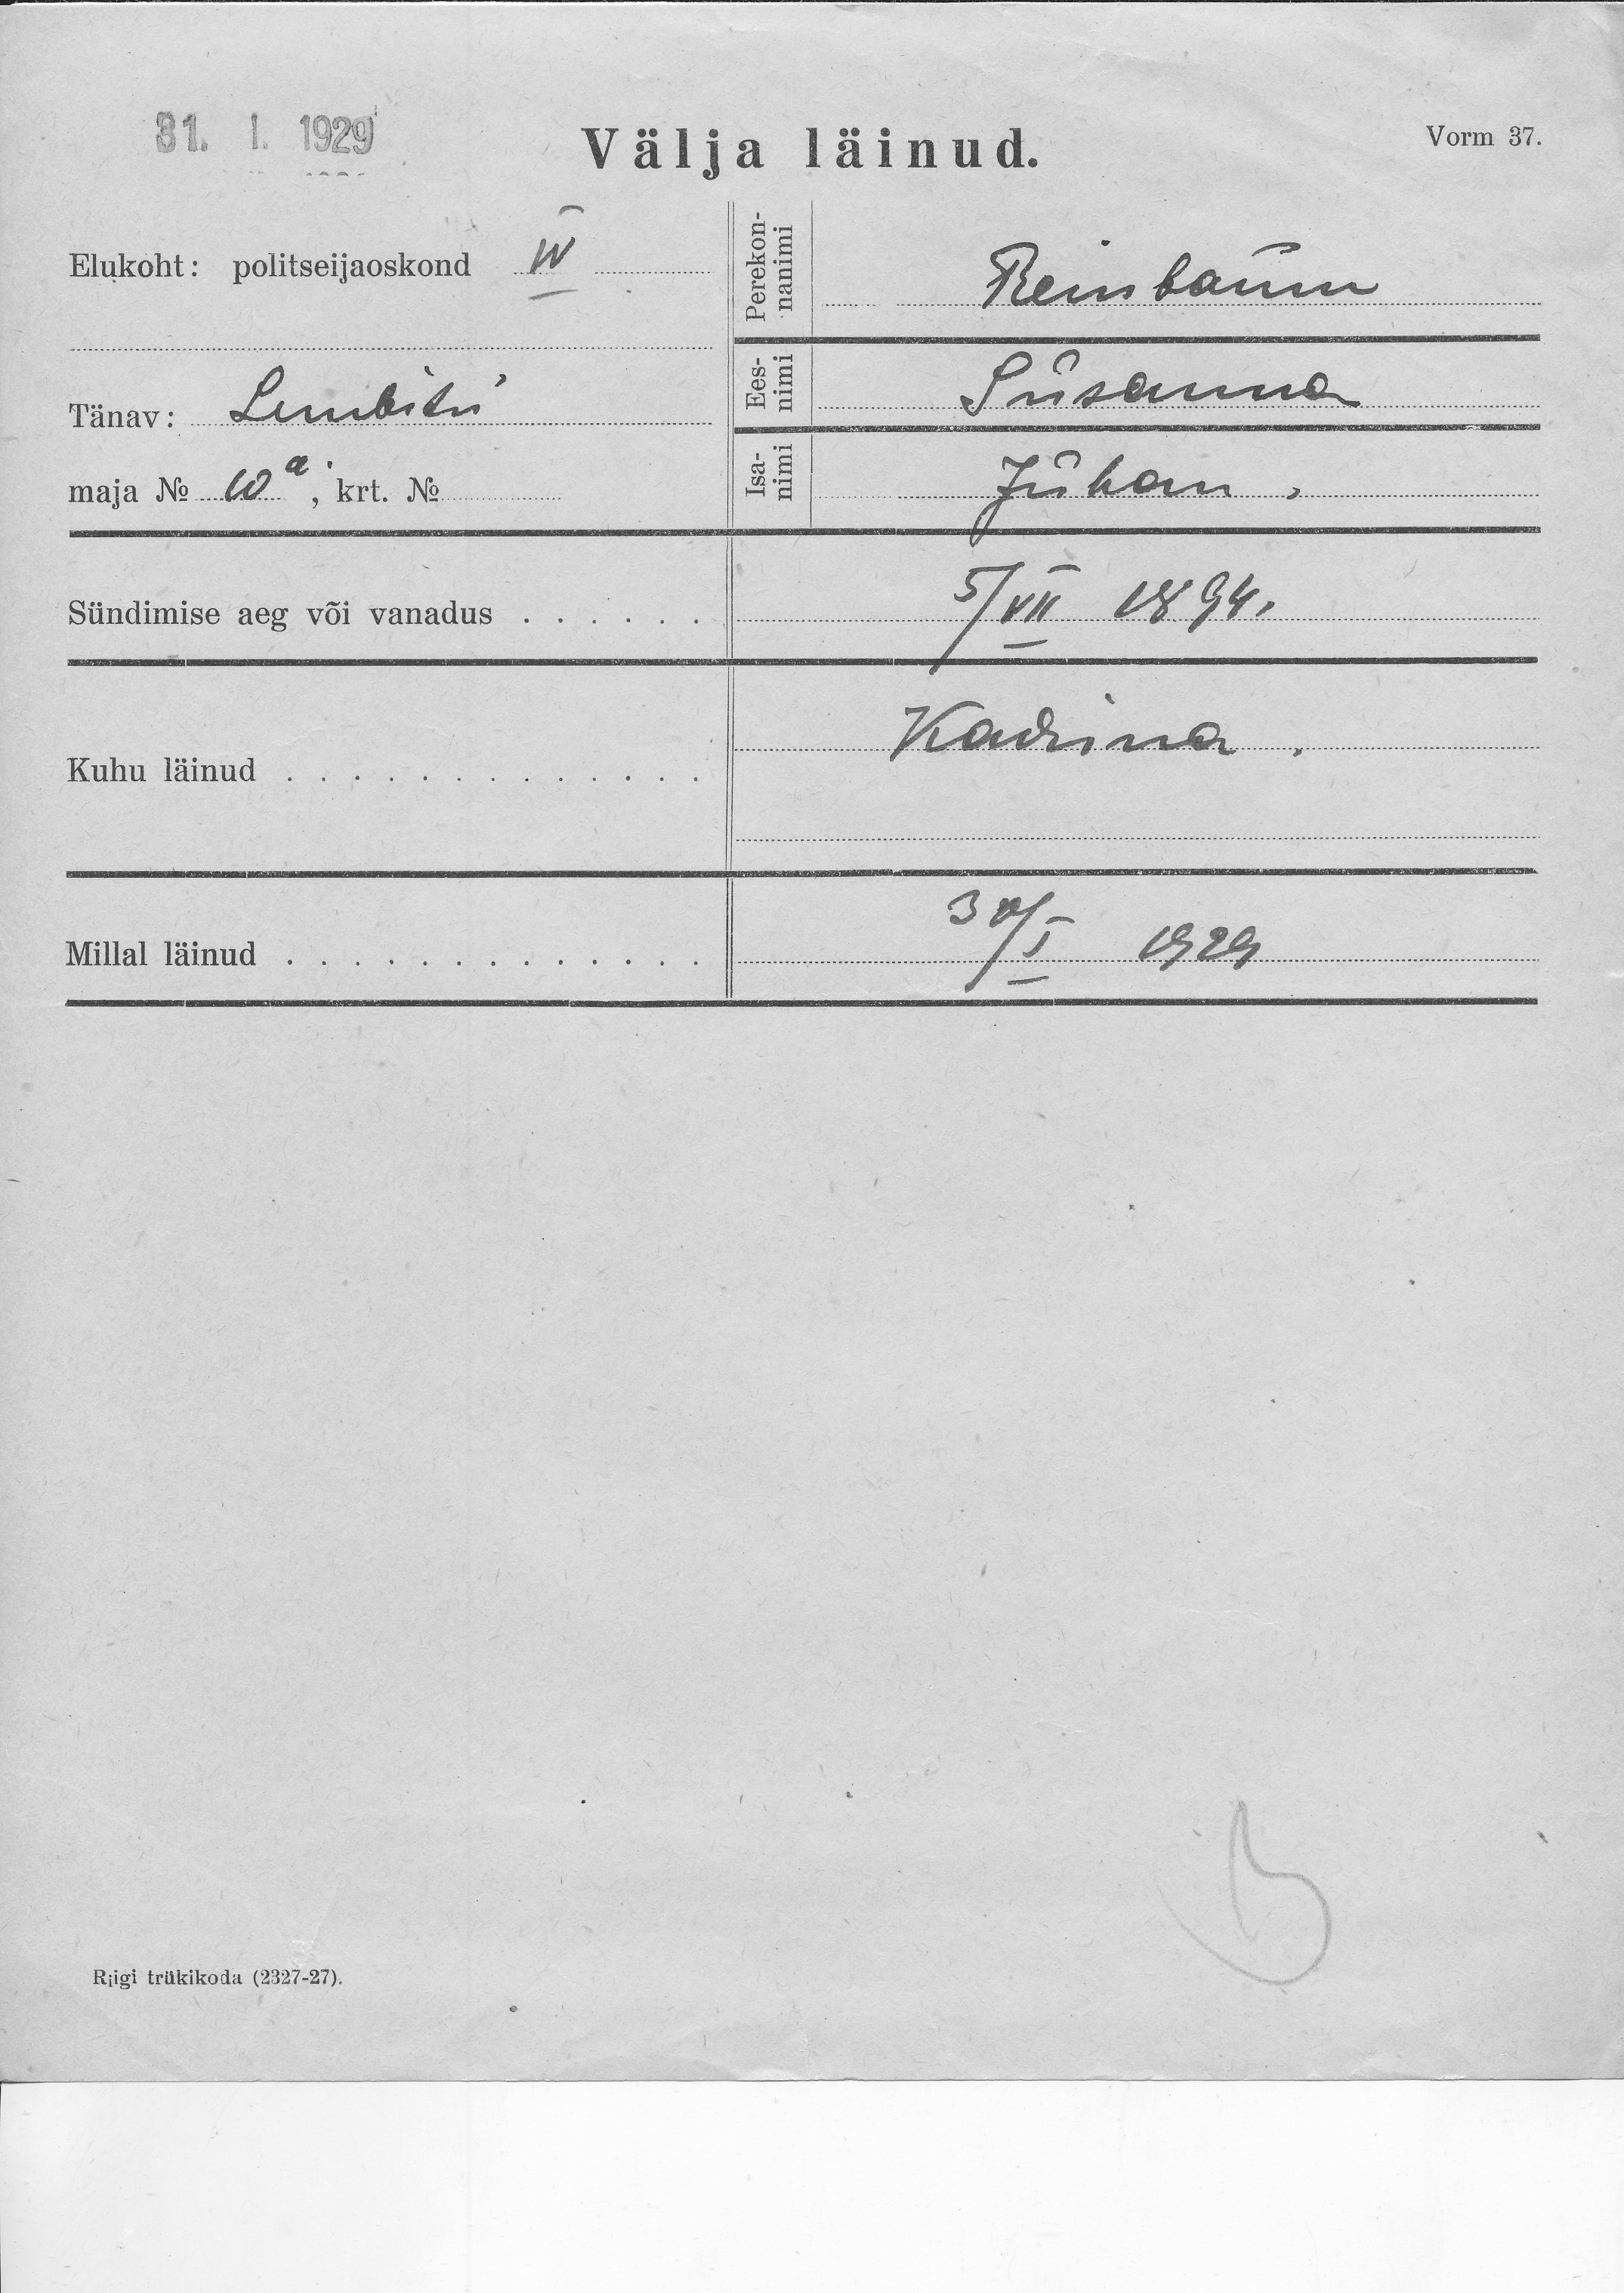 31. I. 1929
Välja läinud.
Vorm 37.
Elukoht: politseijaoskond IV
Tänav: Lembitu
maja № 10a, krt. №
Perekon-
nanimi
Reinbaum
Ees-
nimi
Susanna
Isa-
nimi
Juhan.
Sündimise aeg või vanadus . . . . . .
5/VII 1894.
Kuhu läinud . . . . . . . . . . . . . .
Kadrina.
Millal läinud . . . . . . . . . . . . . .
30/I 1929
Riigi trükikoda (2327-27).